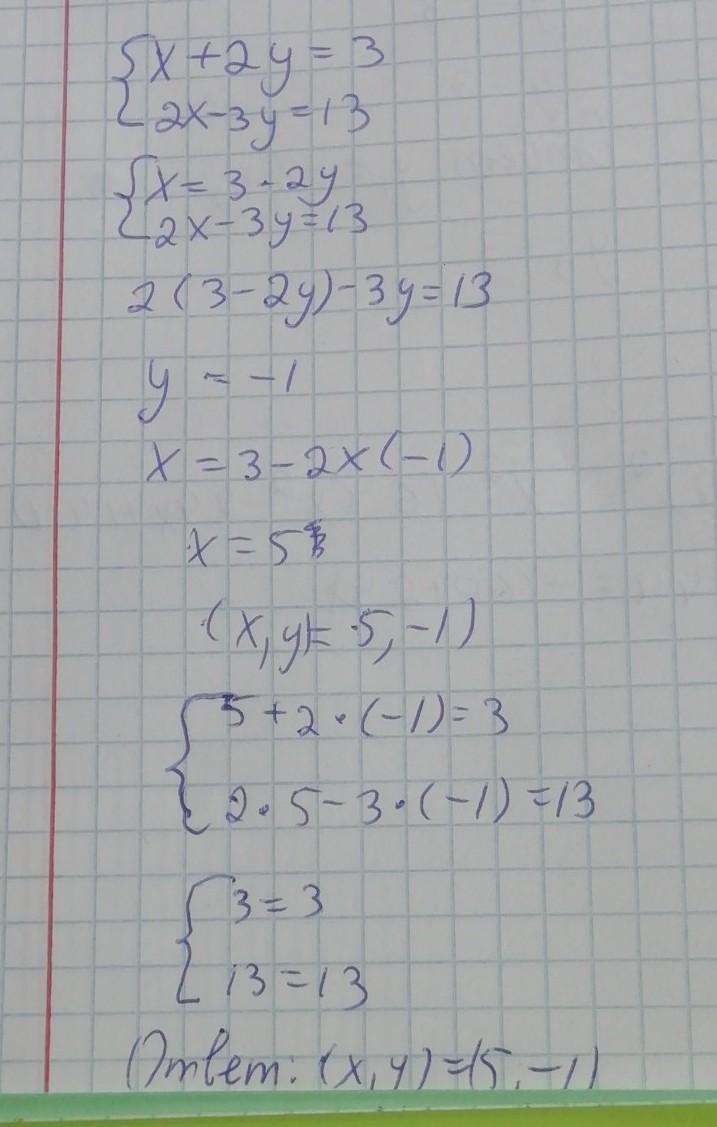 {x + 2y = 3
{2x - 3y = 13
{x = 3 - 2y
{2x - 3y = 13
2(3 - 2y) - 3y = 13
y = -1
x = 3 - 2x(-1)
x = 5
(x, y) = 5, -1)
{5 + 2 · (-1) = 3
{2 · 5 - 3 · (-1) = 13
{3 = 3
{13 = 13
Ответ: (x, y) = (5, -1)